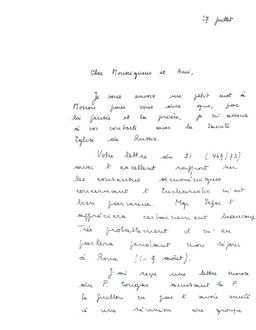 7 juillet
Cher Monseigneur et Ami,
Je vous envoie un petit mot à
Moscou pour vous dire que, par
la pensée et la prière, je m'associe
à vos contacts avec la Sainte
Eglise de Russie.
Votre lettre du 21 (469/73)
avec l'excellent rapport sur
les
concernant l'Eucharistie m'est
bien parvenue. Mgr
appréciera certainement beaucoup.
Très probablement il m'en
parlera pendant mon séjour
à Rome (1-9 août).
J'ai reçu une lettre
du P. annonçant le P.
Le Guillou ne pas l'avoir invité
à une réunion du groupe